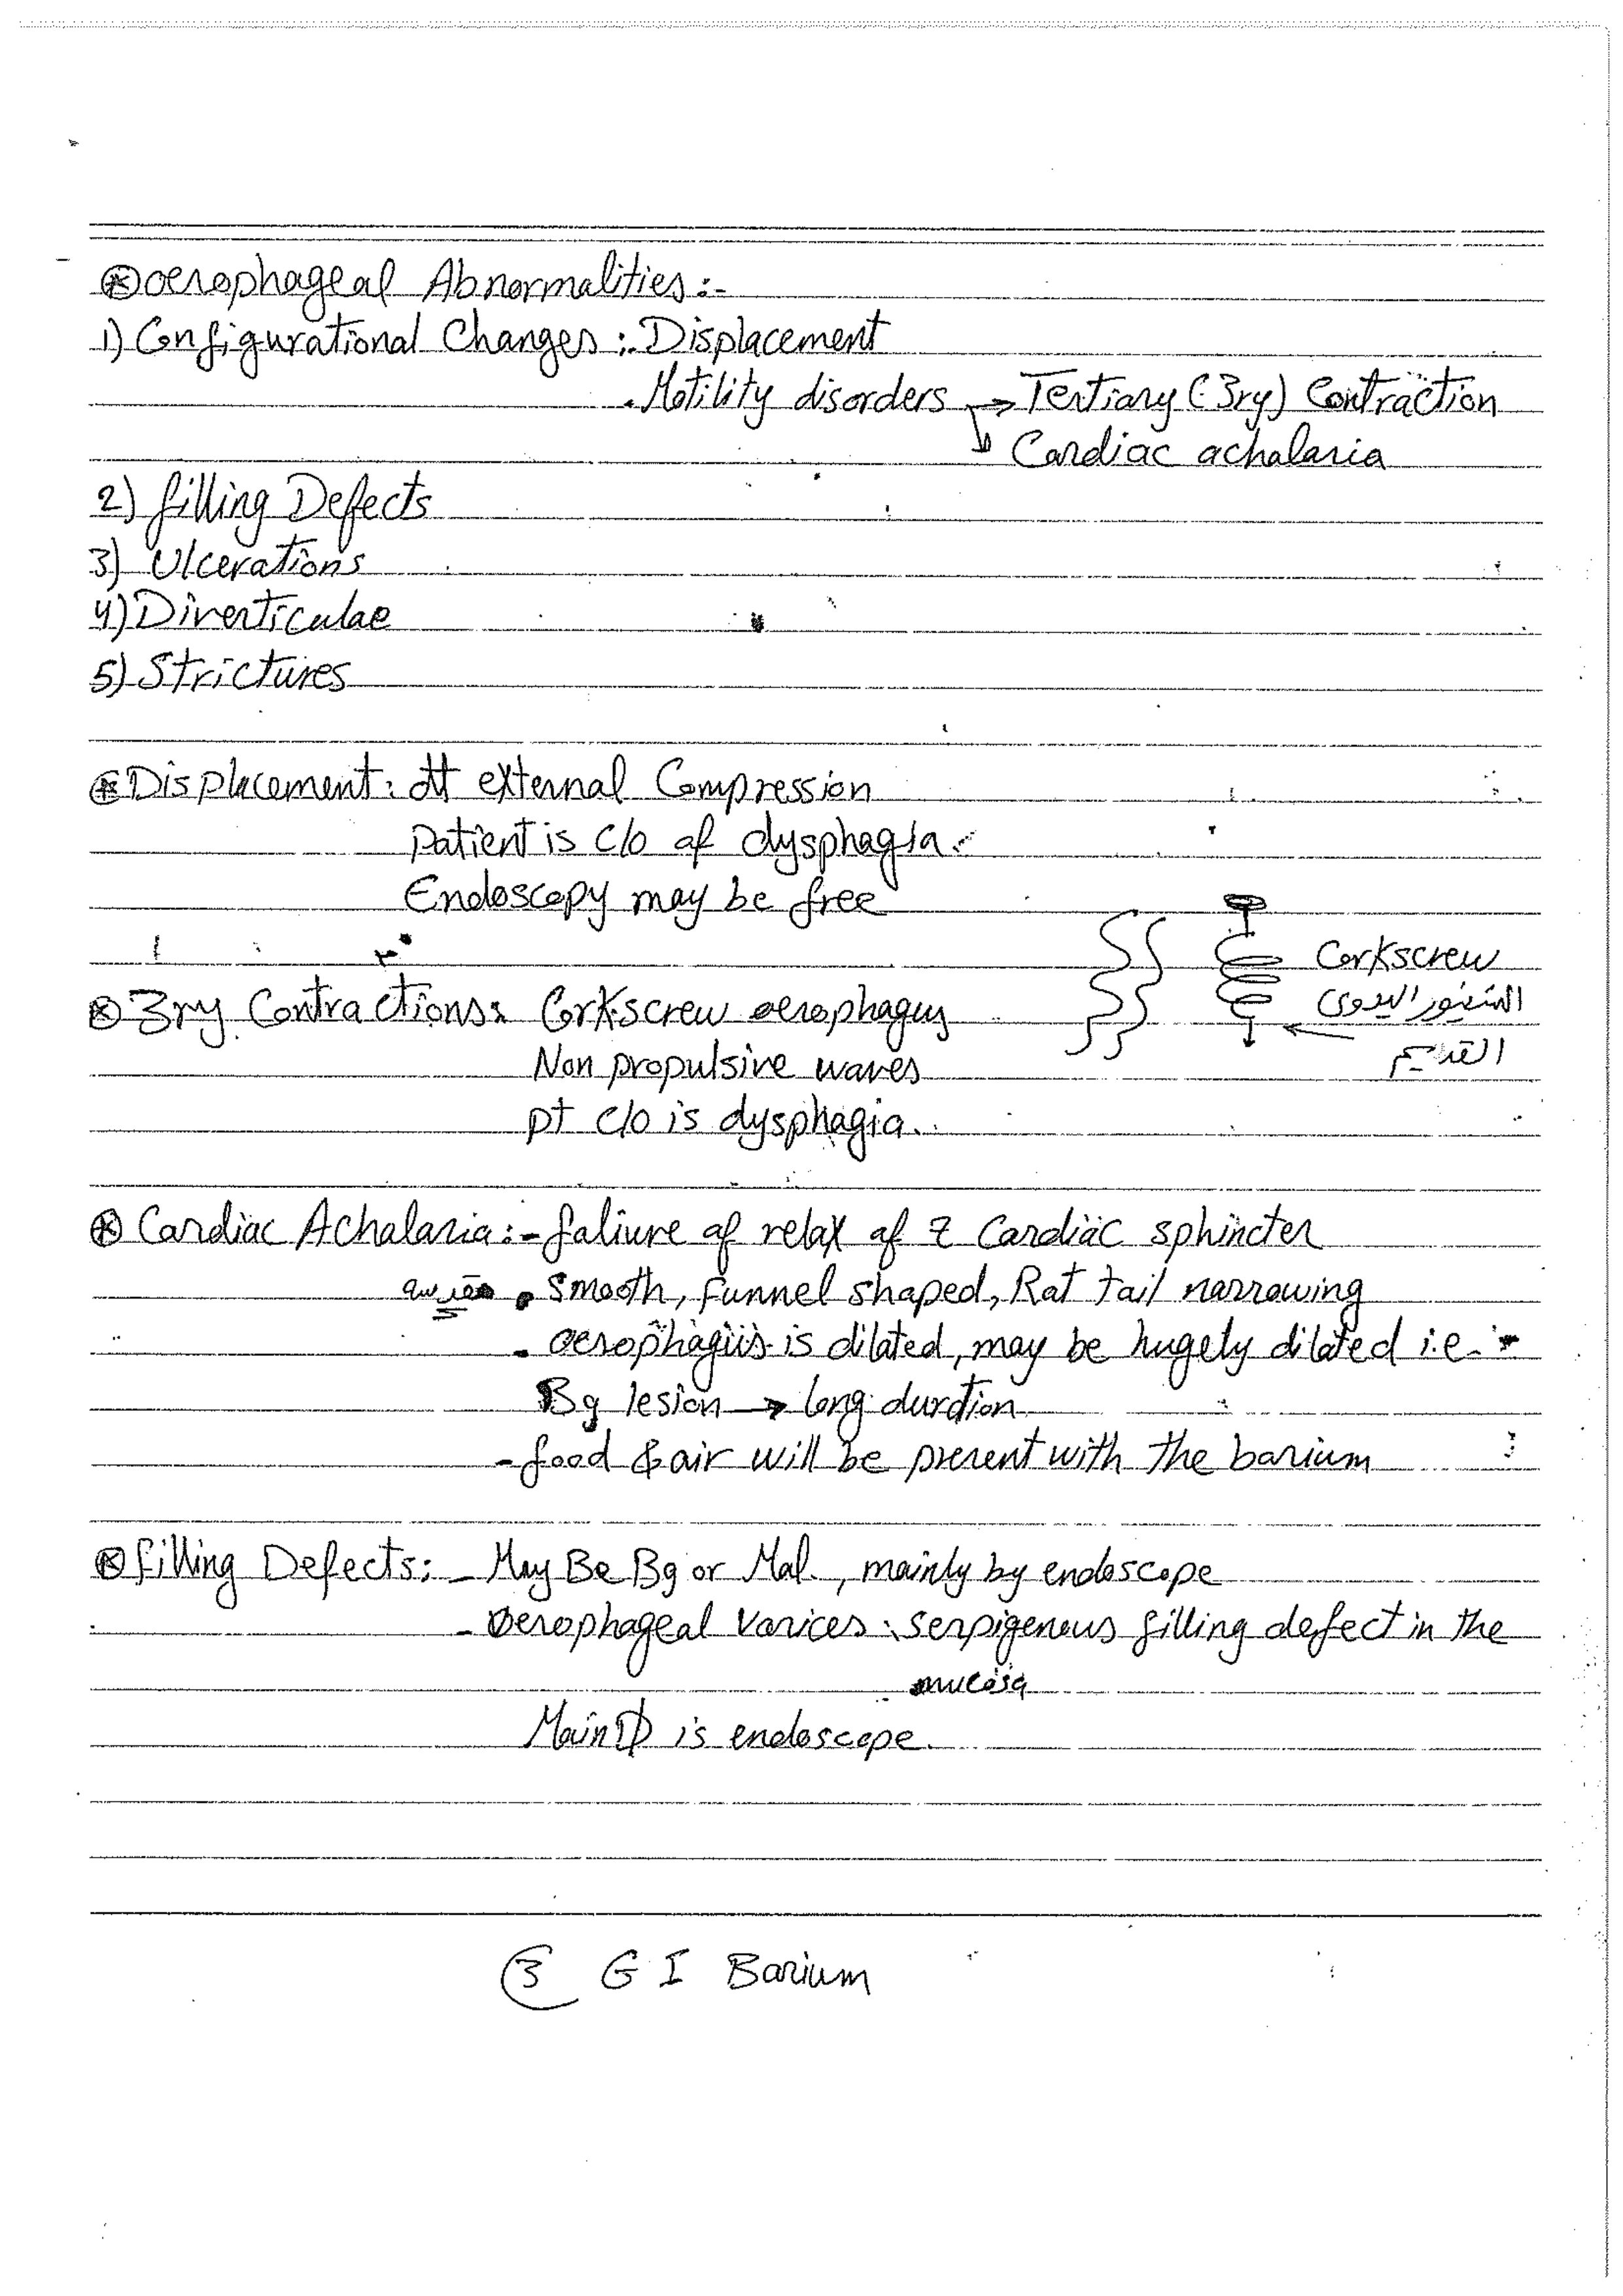 ⊛ oesophageal Abnormalities:-
1) Configurational Changes: . Displacement
. Motility disorders → Tertiary (3ry) Contraction
↳ Cardiac achalasia
2) filling Defects
3) Ulcerations
4) Diverticulae
5) Strictures
⊛ Displacement: dt external Compression
Patient is c/o of dysphagia.
Endoscopy may be free
Corkscrew
اليدوى
القديم
⊛ 3ry Contractions: Corkscrew oesophagus
Non propulsive waves
pt c/o is dysphagia.
⊛ Cardiac Achalasia:- faliure of relax of z Cardiac sphincter
. smooth, funnel shaped, Rat tail narrowing
. oesophagus is dilated, may be hugely dilated i.e.
Bg lesion → long durdtion
- food & air will be present with the barium
⊛ filling Defects: - May Be Bg or Mal., mainly by endoscope
- Oesophageal Varices: serpigenous filling defect in the
mucosa
Main is endoscope.
3 G I Barium